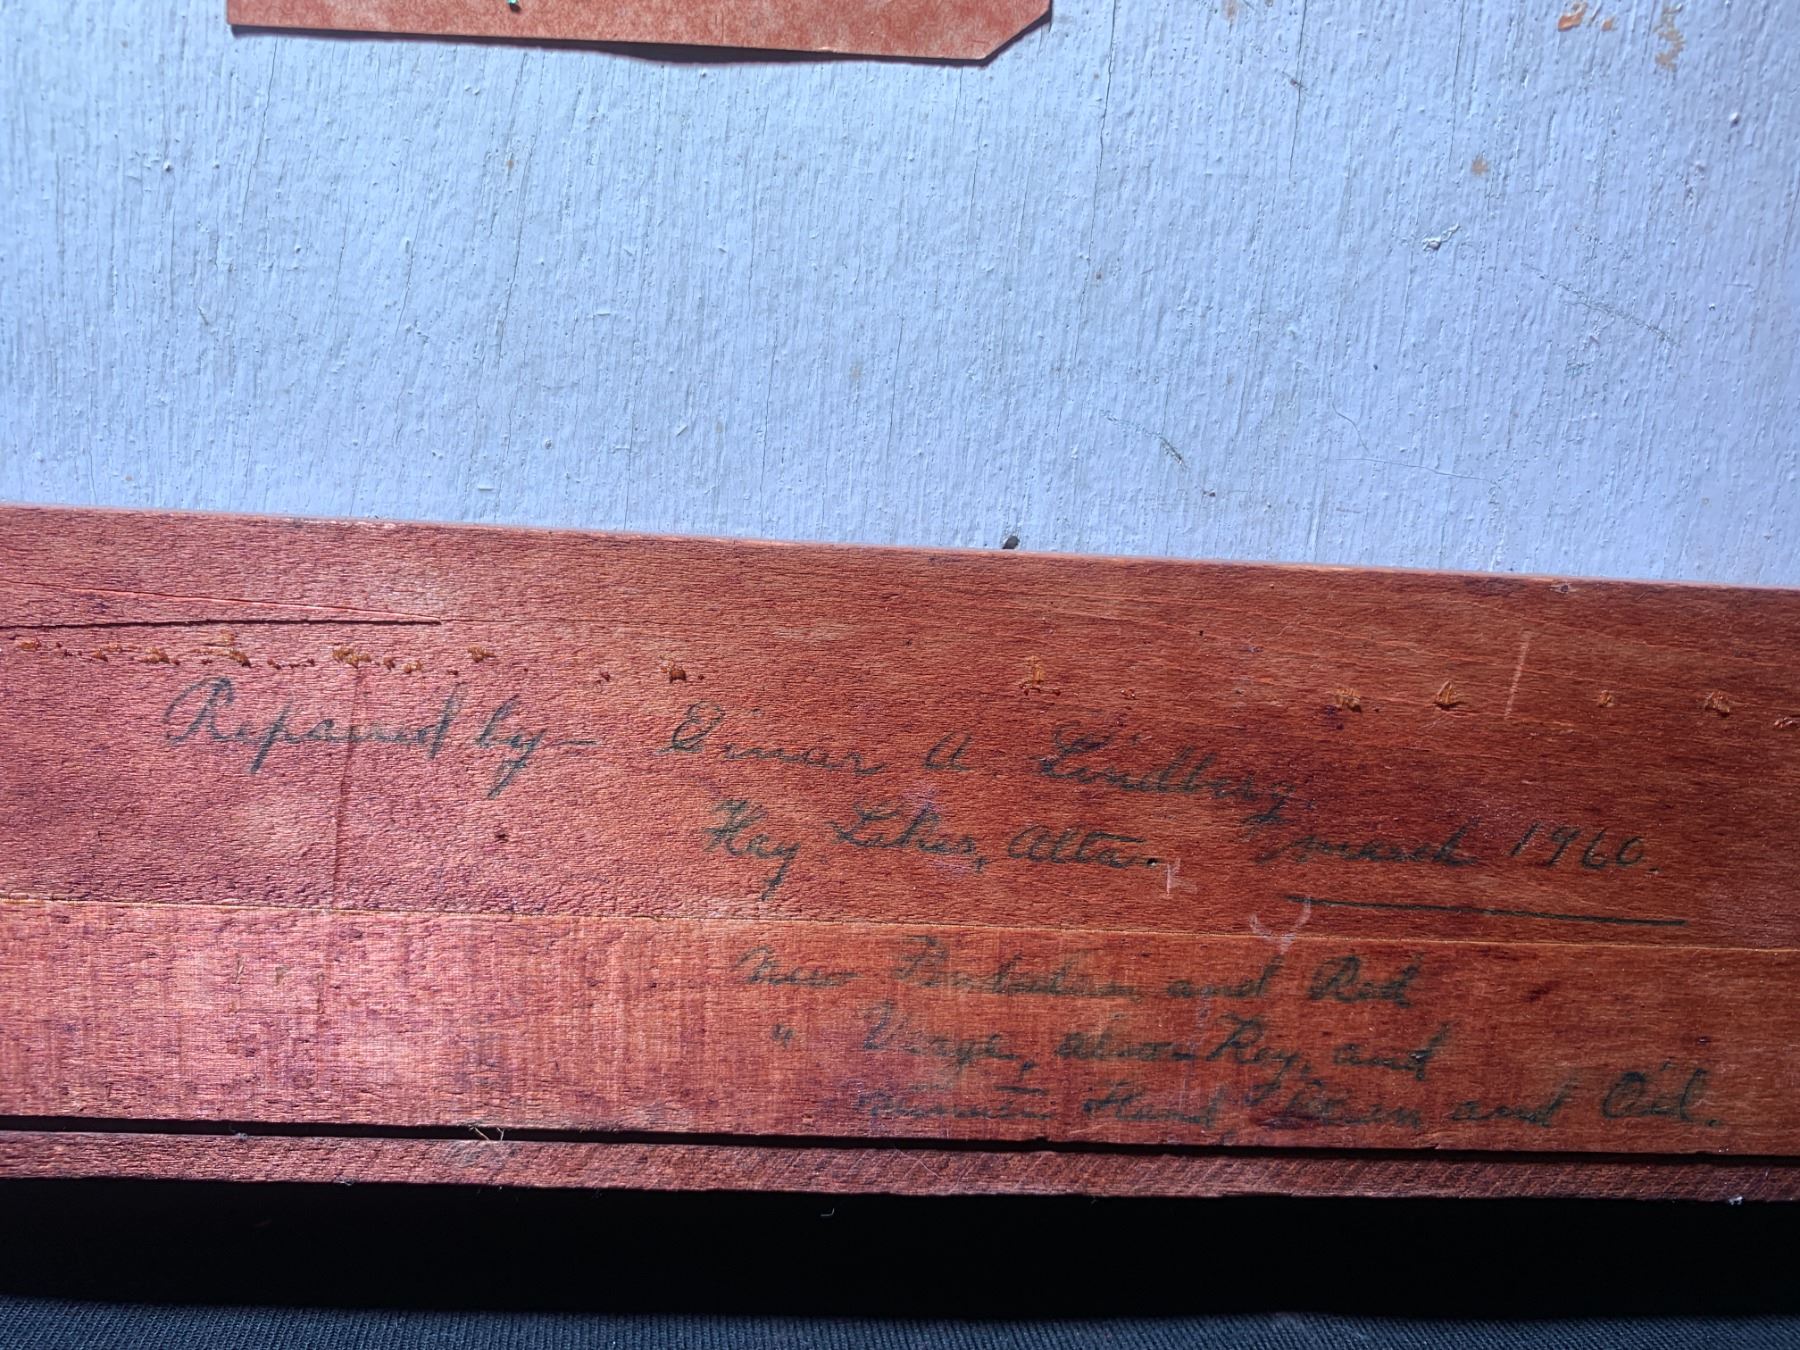 Repaired by - Einar A. Lindberg,
Hay Lakes, Alta. March 1960.
New Pendulum and Rod
" Verge, also Key, and
minute Hand, Clean and Oil.